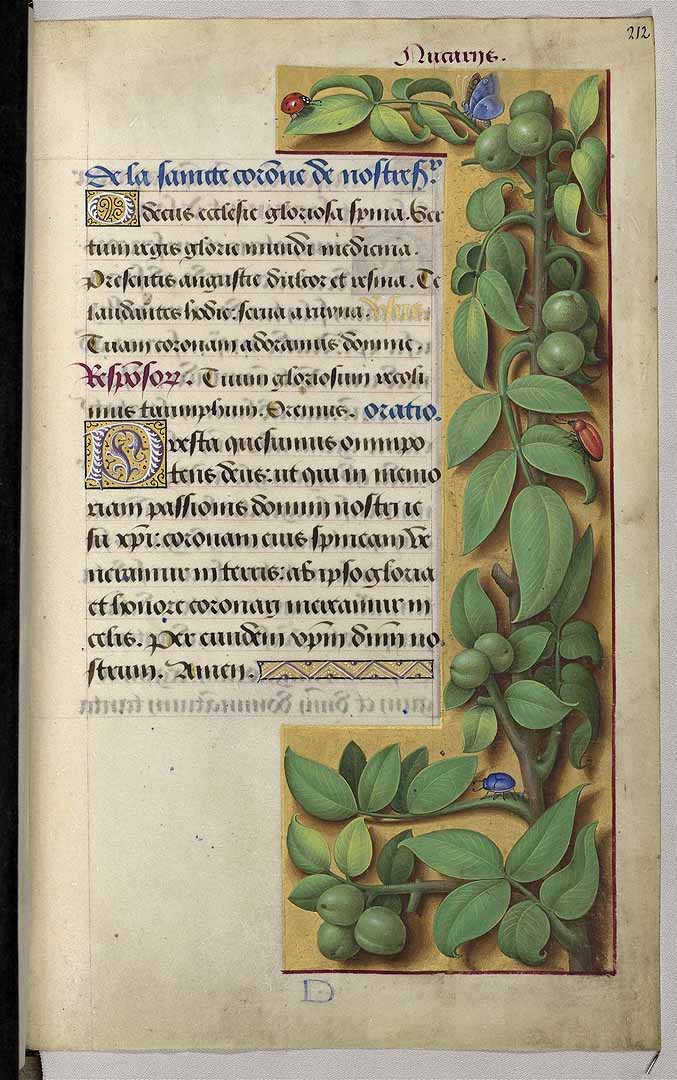 212
Nucarijs.
De la saincte coronne de nostre sr
O decus ecclesie gloriosa spina. Ser
tum regis glorie mundi medicina.
Presentis angustie dulcor et resina. Te
laudantes hodie: serua a ruyna. Versus.
Tuam coronam adoramus domine.
Responsor. Tuum gloriosum recoli
mus triumphum. Oremus. oratio.
Presta quesumus omnipo
tens deus: ut qui in memo
riam passionis domini nostri ie
su xpi: coronam eius spineam ve
neramur in terris: ab ipso gloria
et honore coronari mereamur in
celis. Per eundem xpm dnm no
strum. Amen.
D